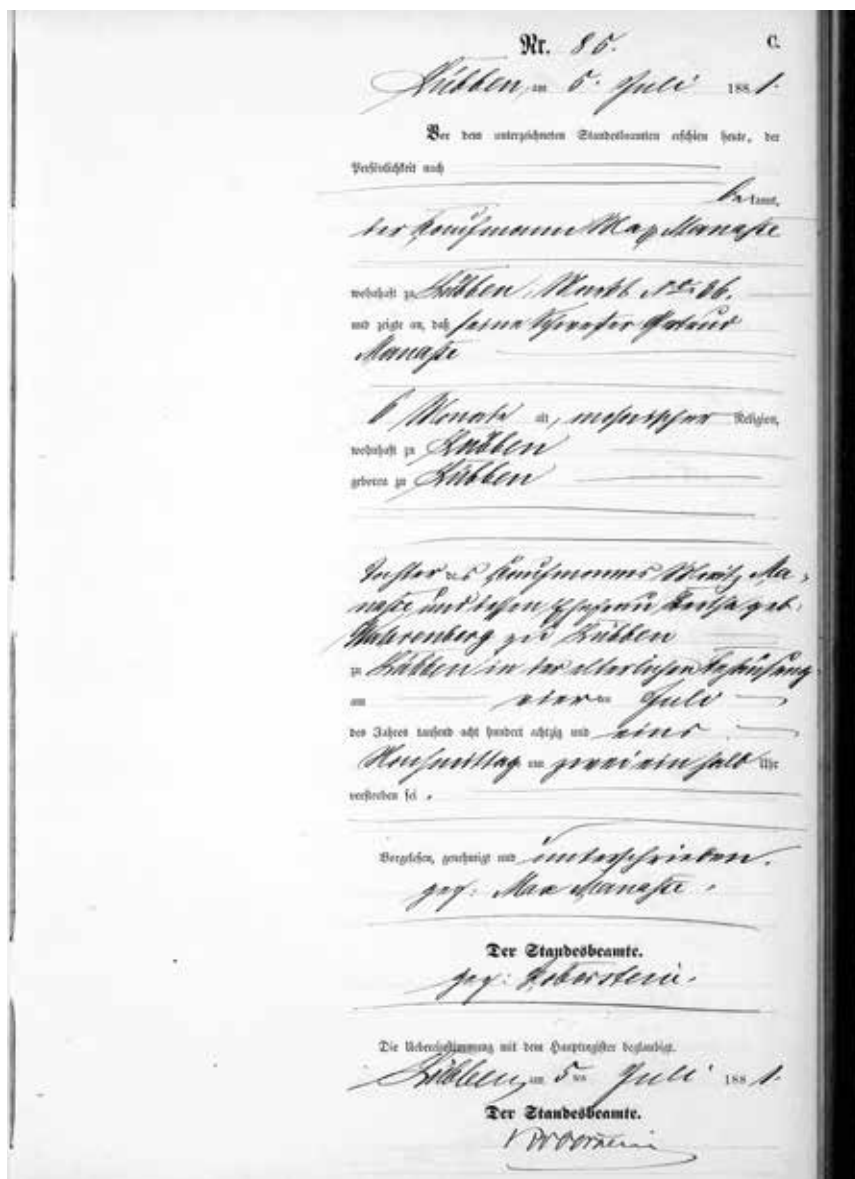 Nr. 85. C.
Lübben, am 5. Juli 1881.
Vor dem unterzeichneten Standesbeamten erschien heute, der
Persönlichkeit nach
bekannt,
der Kaufmann Max Manasse
wohnhaft zu Lübben, Markt No 26.
und zeigte an, daß seine Schwester Gertrud
Manasse
6 Monate alt, mosaischer Religion,
wohnhaft zu Lübben
geboren zu Lübben
Tochter des Kaufmannes Moritz Ma-
nasse und dessen Ehefrau Bertha geb.
zu Lübben
zu Lübben in der elterlichen Behausung
am vierten Juli
des Jahres tausend acht hundert achtzig und eins
Nachmittag um zwei ein halb Uhr
verstorben sei.
Vorgelesen, genehmigt und unterschrieben.
gez: Max Manasse.
Der Standesbeamte.
gez:
Die Uebereinstimmung mit dem Hauptregister beglaubigt.
Lübben, am 5ten Juli 1881.
Der Standesbeamte.